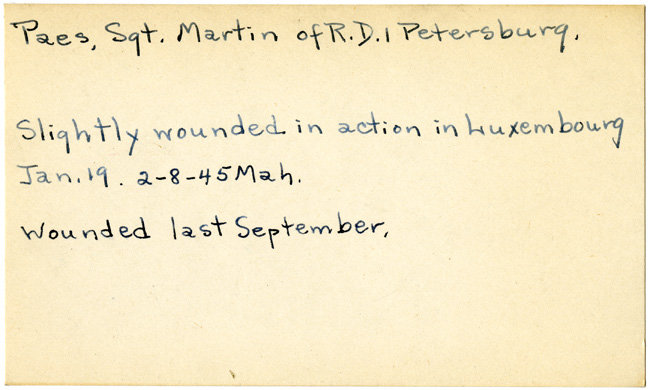 Paes, Sgt. Martin of R.D.1 Petersburg.
Slightly wounded in action in Luxembourg
Jan.19. 2-8-45 Mah.
Wounded last September.